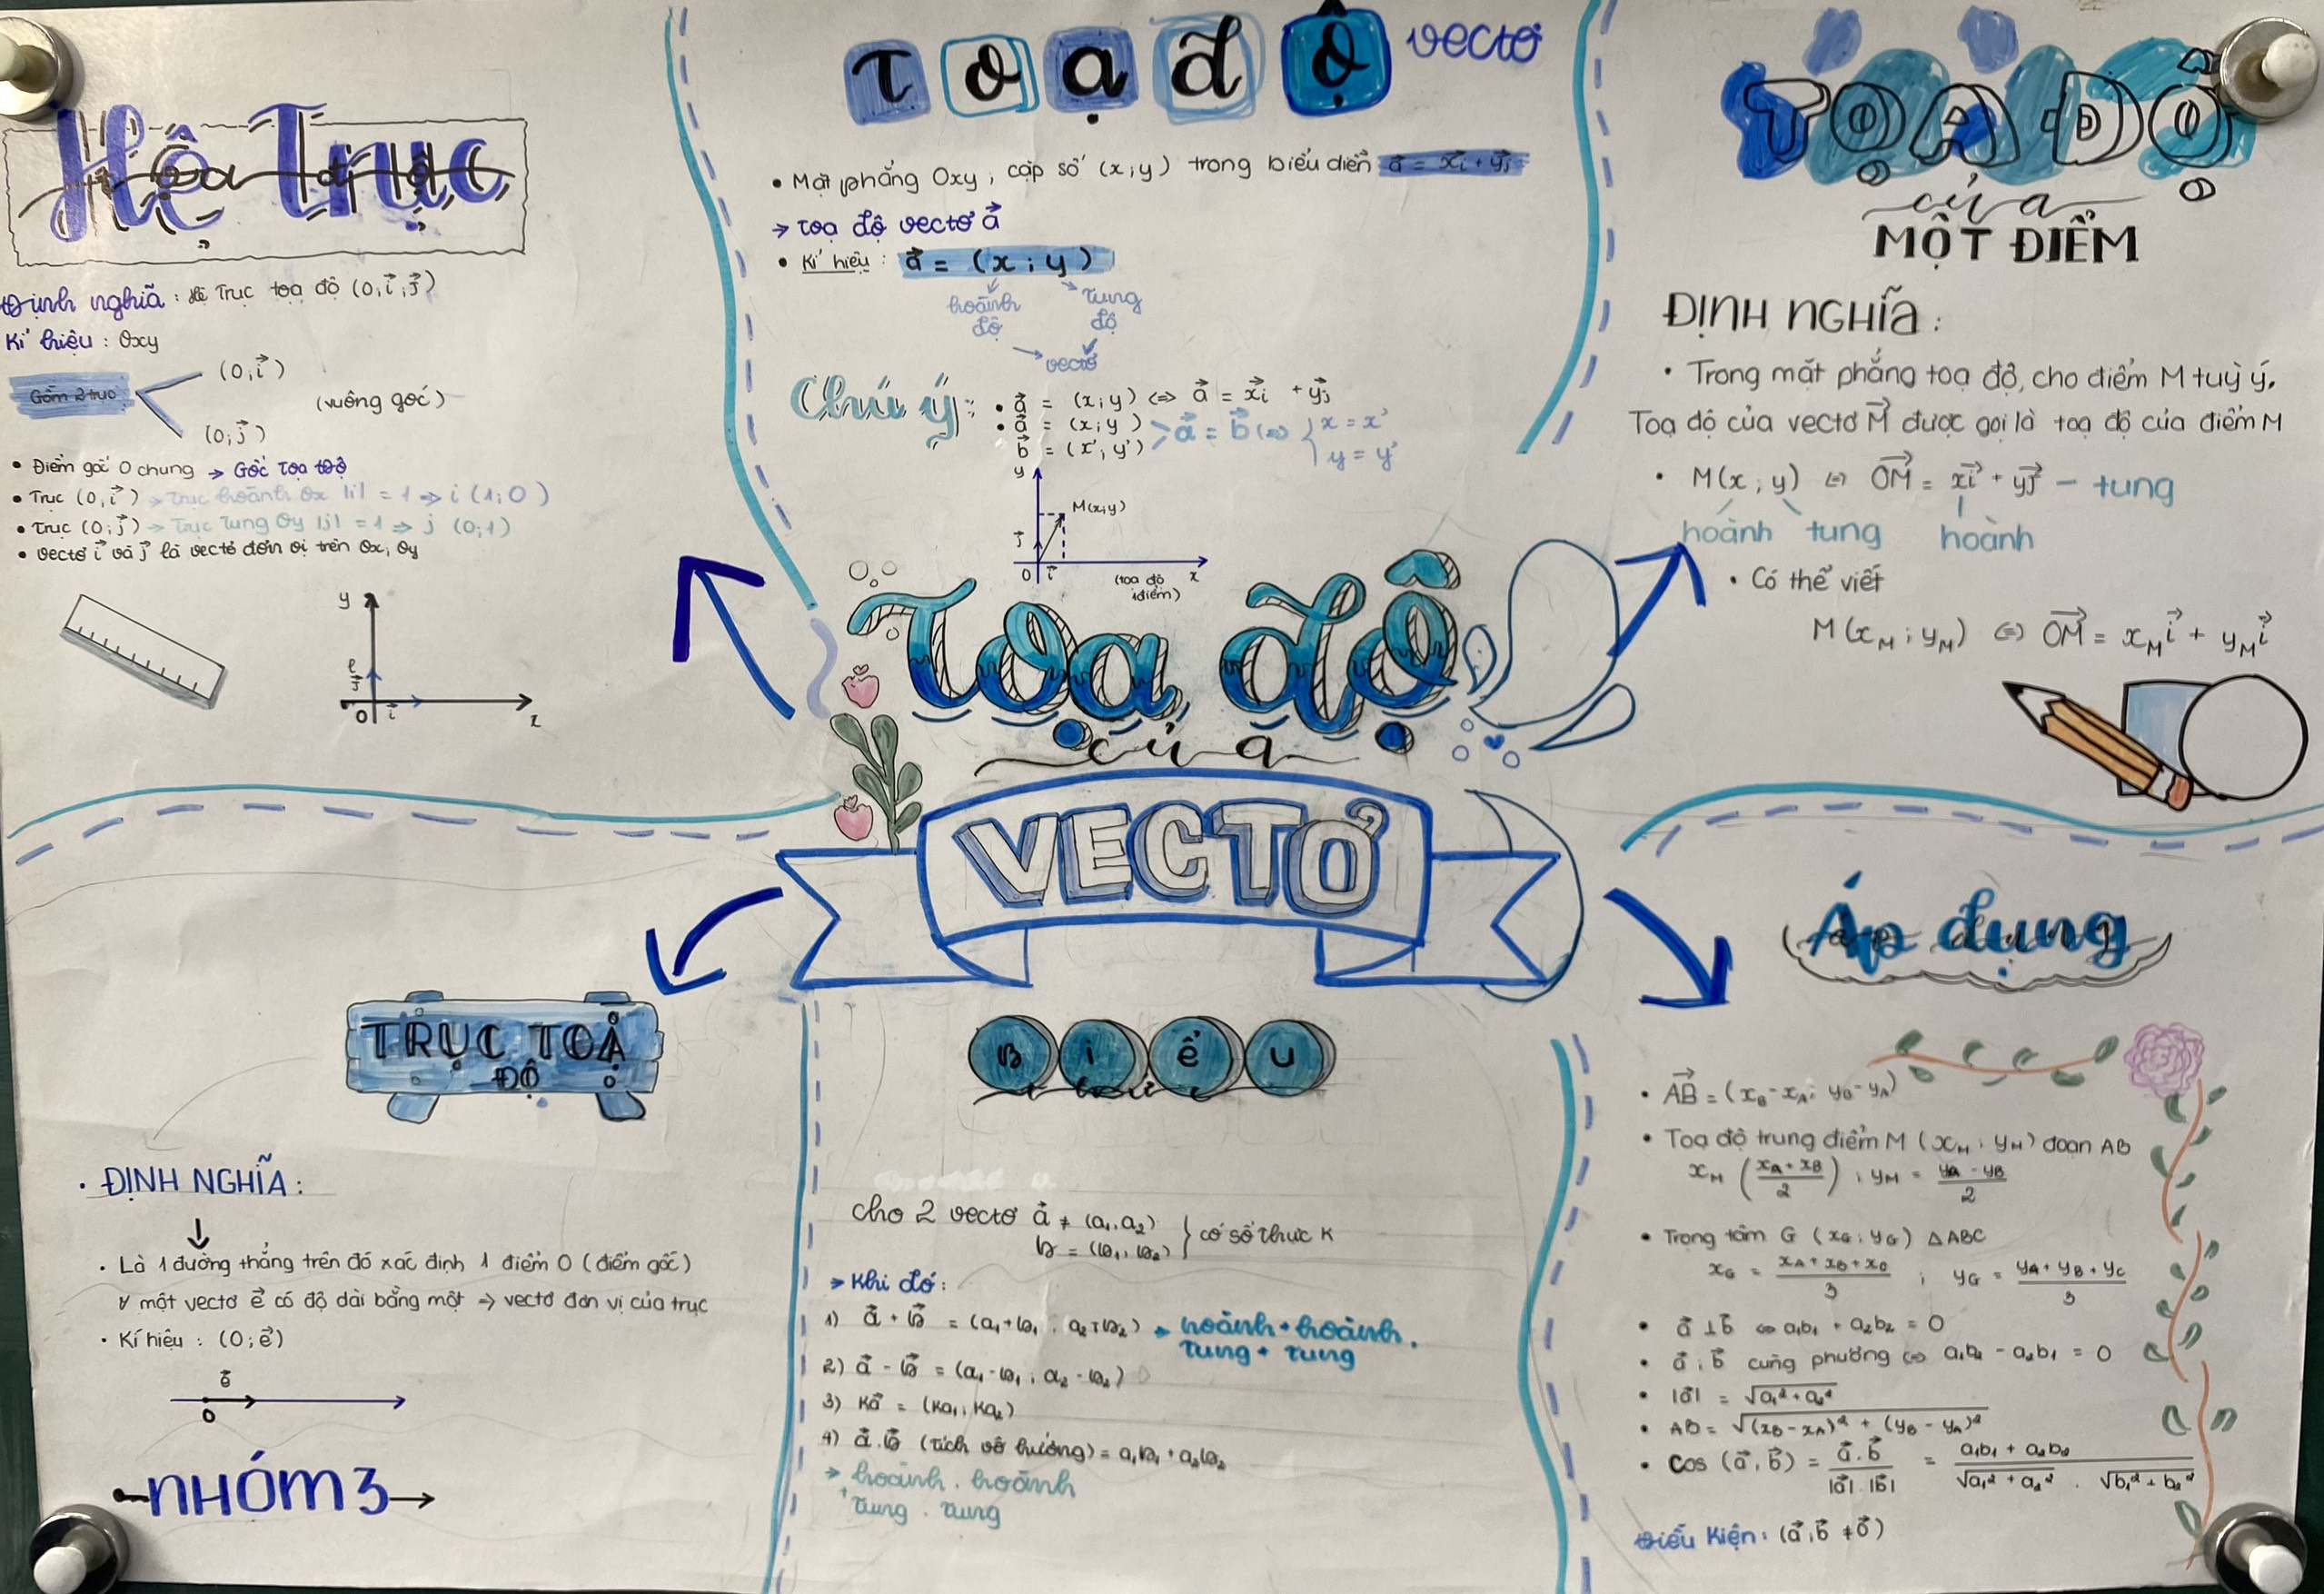 Hệ Trục
toạ độ
Định nghĩa : Hệ Trục toạ độ (O, i⃗, j⃗)
Kí hiệu : Oxy
Gồm 2 trục
(O, i⃗)
(vuông góc)
(O; j⃗)
• Điểm gốc O chung → Gốc Toạ Độ
• Trục (O, i⃗) → Trục hoành Ox |i| = 1 => i (1; 0)
• Trục (O; j⃗) → Trục Tung Oy |j| = 1 => j (0; 1)
• vectơ i⃗ và j⃗ là vectơ đơn vị trên Ox, Oy
y
j⃗
O i⃗ x
Toạ độ vectơ
• Mặt phẳng Oxy, cặp số (x; y) trong biểu diễn a⃗ = xi⃗ + yj⃗
→ toạ độ vectơ a⃗
• Kí hiệu : a⃗ = (x ; y)
hoành độ
tung độ
vectơ
Chú ý:
• a⃗ = (x; y) <=> a⃗ = xi⃗ + yj⃗
• a⃗ = (x; y)
b⃗ = (x'; y')
> a⃗ = b⃗ <=> { x = x'
y = y'
y
M(x;y)
j⃗
O i⃗ x
(toạ độ
1 điểm)
TOẠ ĐỘ
của
MỘT ĐIỂM
ĐỊNH NGHĨA :
• Trong mặt phẳng toạ độ, cho điểm M tuỳ ý.
Toạ độ của vectơ M⃗ được gọi là toạ độ của điểm M
• M(x ; y) <=> OM⃗ = xi⃗ + yj⃗ – tung
hoành tung hoành
• Có thể viết
M(x_M ; y_M) <=> OM⃗ = x_M i⃗ + y_M i⃗
Toạ độ
của
VECTƠ
TRỤC TOẠ
ĐỘ
• ĐỊNH NGHĨA :
• Là 1 đường thẳng trên đó xác định 1 điểm O (điểm gốc)
∀ một vectơ e⃗ có độ dài bằng một => vectơ đơn vị của trục
• Kí hiệu : (O; e⃗)
e⃗
O
NHÓM 3
Biểu
cho 2 vectơ a⃗ ≠ (a₁, a₂)
b = (b₁, b₂) } có số thực K
→ Khi đó :
1) a⃗ + b⃗ = (a₁+b₁ ; a₂+b₂) → hoành + hoành.
tung + tung
2) a⃗ - b⃗ = (a₁-b₁ ; a₂-b₂)
3) Ka⃗ = (Ka₁; Ka₂)
4) a⃗.b⃗ (tích vô hướng) = a₁b₁ + a₂b₂
→ hoành . hoành
+ tung . tung
Áp dụng
• AB⃗ = (x_B - x_A; y_B - y_A)
• Toạ độ trung điểm M (x_M ; y_M) đoạn AB
x_M ((x_A + x_B)/2) ; y_M = (y_A - y_B)/2
• Trọng tâm G (x_G ; y_G) △ABC
x_G = (x_A + x_B + x_C)/3 ; y_G = (y_A + y_B + y_C)/3
• a⃗ ⊥ b⃗ <=> a₁b₁ + a₂b₂ = 0
• a⃗ ; b⃗ cùng phương <=> a₁b₂ - a₂b₁ = 0
• |a⃗| = √(a₁² + a₂²)
• AB = √((x_B - x_A)² + (y_B - y_A)²)
• cos (a⃗, b⃗) = (a⃗ . b⃗)/(|a⃗| . |b⃗|) = (a₁b₁ + a₂b₂)/(√(a₁² + a₂²) . √(b₁² + b₂²))
Điều Kiện : (a⃗, b⃗ ≠ 0⃗)